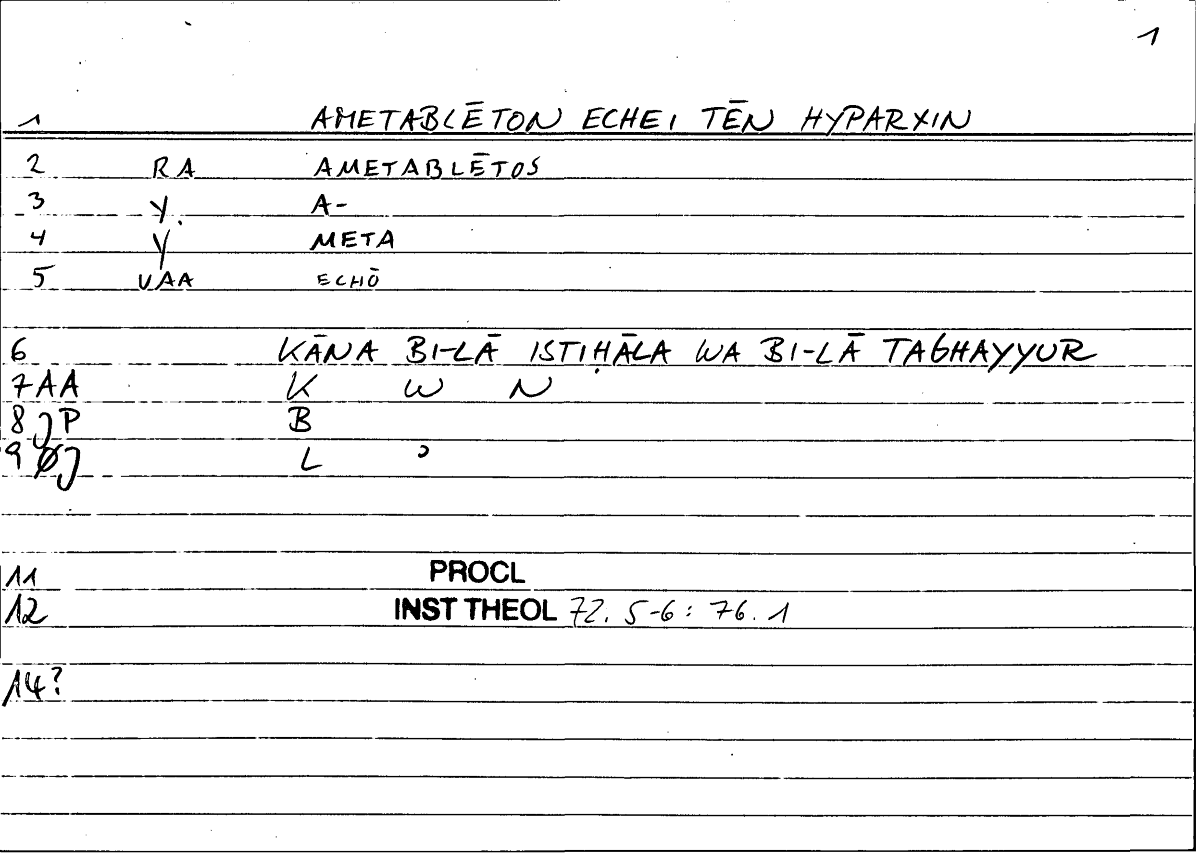 1
1 AMETABLĒTON ECHEI TĒN HYPARXIN
2 RA AMETABLĒTOS
3 Y. A-
4 Y META
5 VAA ECHŌ
6 KĀNA BI-LĀ ISTIḤĀLA WA BI-LĀ TAGHAYYUR
7 AA K W N
8 JP B
9 ØJ L ʾ
11 PROCL
12 INST THEOL 72. 5-6 : 76. 1
14?